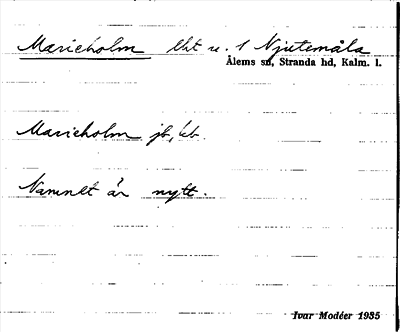 Marieholm lht u. 1 Njutemåla
Ålems sn, Stranda hd, Kalm. l.
Marieholm jb, kb.
Namnet är nytt.
Ivar Modéer 1935